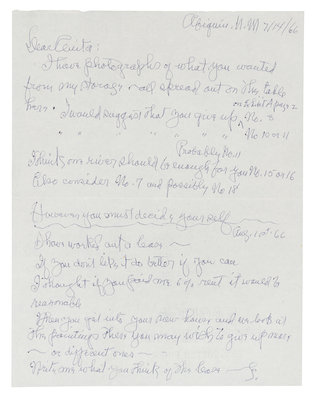 Abiquiu. N.M 7/14/66
Dear Anita:
I have photographs of what you wanted
from my storage — all spread out on this table
here. on Exhibit A page 2
I would suggest that you give up No. 3
" " " " " " No. 10 or 11
Probably No 11
I think one river should be enough for you No. 15 or 16
Also consider No - 7 and possibly No. 18
However you must decide yourself
Aug. 1st - 66
I have worked out a lease ~
If you don't like it do better if you can
I thought if you paid me 6% rent it would be
reasonable
When you get into your new house and we look at
the paintings there you may wish to give up more
~ or different ones ~
Write me what you think of this lease —